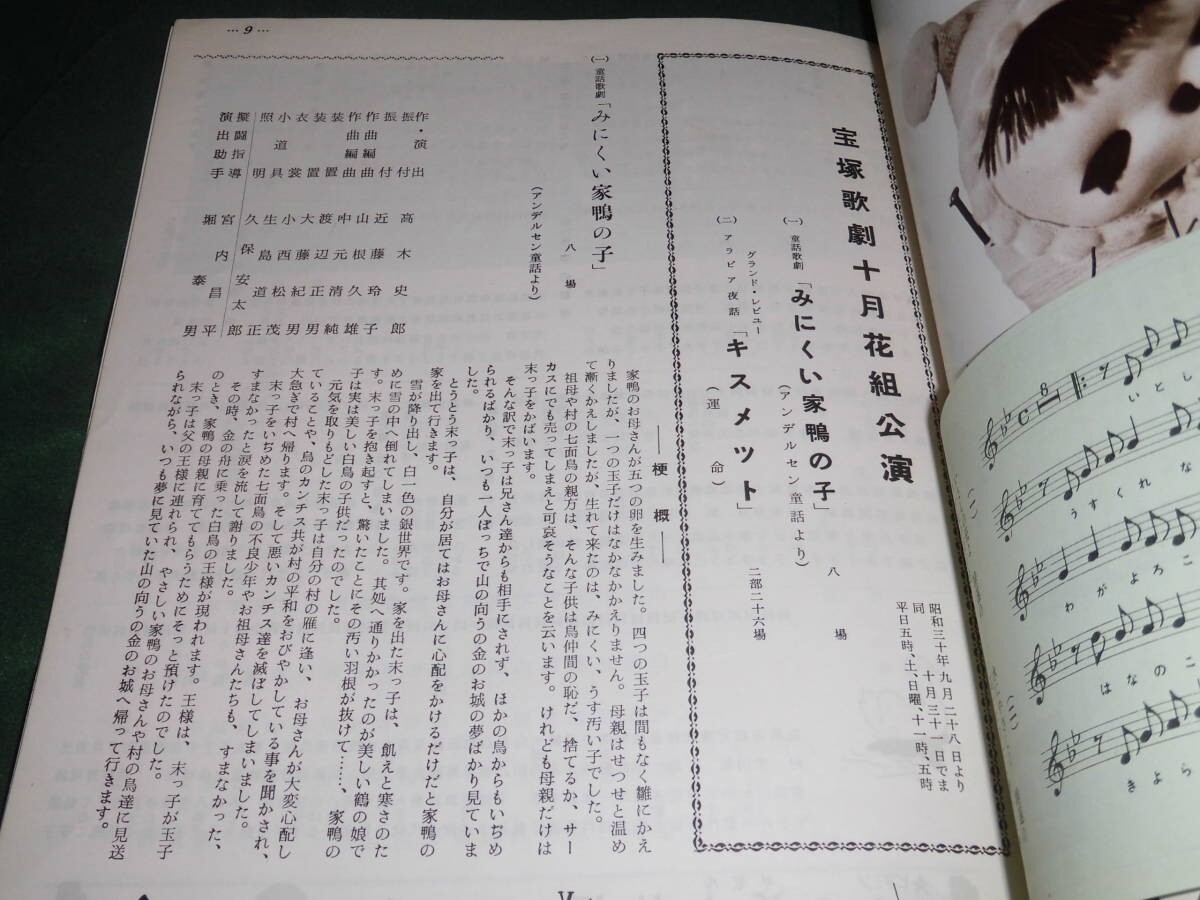 … 9 …
宝塚歌劇十月花組公演
昭和三十年九月二十八日より
同　　十月三十一日でま
平日五時、土、日曜、十一時、五時
(一) 童話歌劇「みにくい家鴨の子」　八場
(アンデルセン童話より)
グランド・レビュー
(二) アラビア夜話「キスメット」　二部二十六場
(運命)
(一) 童話歌劇「みにくい家鴨の子」　八場
(アンデルセン童話より)
作・演出
振付　高木史郎
振付　近藤玲子
作曲編曲　山根久雄
作曲編曲　中元清純
装置　渡辺正男
装置　大藤紀男
衣裳　小西松茂
小道具　生島道正
照明　久保安太郎
擬闘指導　宮内昌平
演出助手　堀泰男
――梗概――
家鴨のお母さんが五つの卵を生みました。四つの玉子は間もなく雛にかえ
りましたが、一つの玉子だけはなかなかかえりません。母親はせつせと温め
て漸くかえしましたが、生れて来たのは、みにくい、うす汚い子でした。
祖母や村の七面鳥の親方は、そんな子供は鳥仲間の恥だ、捨てるか、サー
カスにでも売ってしまえと可哀そうなことを云います。けれども母親だけは
末っ子をかばいます。
そんな訳で末っ子は兄さん達からも相手にされず、ほかの鳥からもいぢめ
られるばかり、いつも一人ぼっちで山の向うの金のお城の夢ばかり見ていま
した。
とうとう末っ子は、自分が居てはお母さんに心配をかけるだけだと家鴨の
家を出て行きます。
雪が降り出し、白一色の銀世界です。家を出た末っ子は、飢えと寒さのた
めに雪の中へ倒れてしまいました。其処へ通りかかったのが美しい鶴の娘で
す。末っ子を抱き起すと、驚いたことにその汚い羽根が抜けて……、家鴨の
子は実は美しい白鳥の子供だったのでした。
元気を取りもどした末っ子は自分の村の雁に逢い、お母さんが大変心配し
ていることや、鳥のカンチス共が村の平和をおびやかしている事を聞かされ、
大急ぎで村へ帰ります。そして悪いカンチス達を滅ぼしてしまいました。
末っ子をいぢめた七面鳥の不良少年やお祖母さんたちも、すまなかった、
すまなかったと涙を流して謝りました。
その時、金の舟に乗った白鳥の王様が現われます。王様は、末っ子が玉子
のとき、家鴨の母親に育ててもらうためにそっと預けたのでした。
末っ子は父の王様に連れられ、やさしい家鴨のお母さんや村の鳥達に見送
られながら、いつも夢に見ていた山の向うの金のお城へ帰って行きます。
いとし
(一)
うすくれな
わがよろこ
(二)
はなのこ
きよら